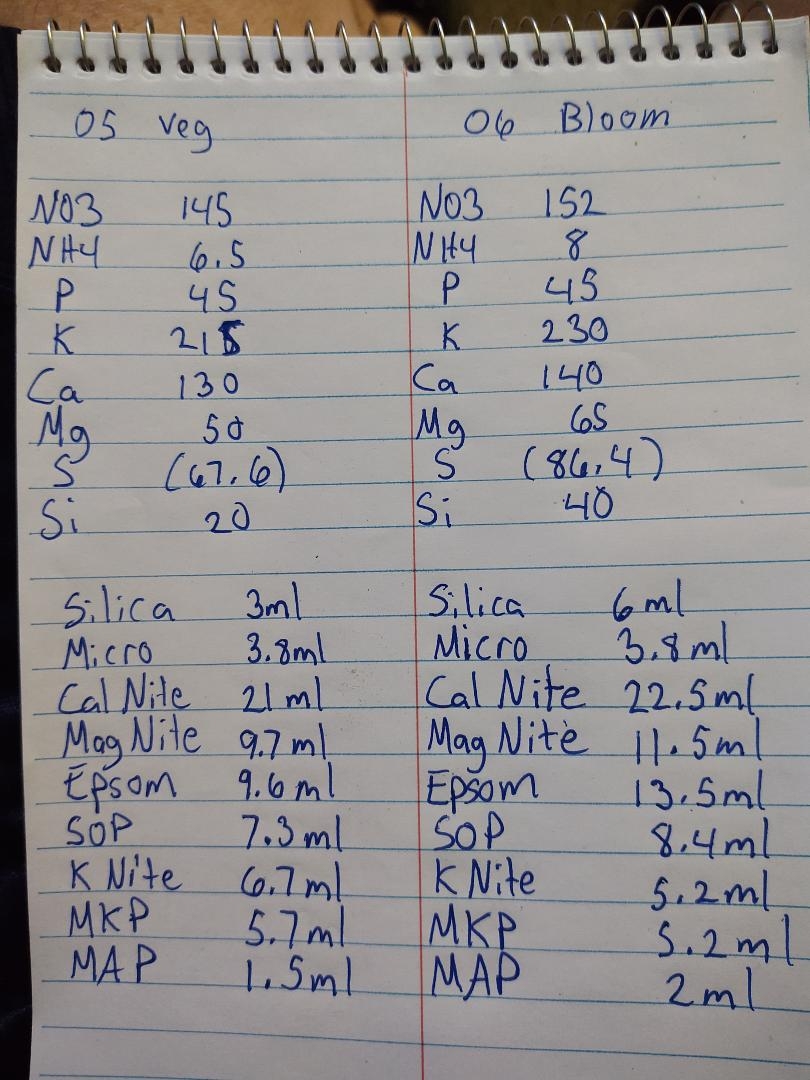 05 Veg
NO3 145
NH4 6.5
P 45
K 215
Ca 130
Mg 50
S (67.6)
Si 20
Silica 3ml
Micro 3.8ml
Cal Nite 21ml
Mag Nite 9.7ml
Epsom 9.6ml
SOP 7.3ml
K Nite 6.7ml
MKP 5.7ml
MAP 1.5ml
06 Bloom
NO3 152
NH4 8
P 45
K 230
Ca 140
Mg 65
S (86.4)
Si 40
Silica 6ml
Micro 3.8ml
Cal Nite 22.5ml
Mag Nite 11.5ml
Epsom 13.5ml
SOP 8.4ml
K Nite 5.2ml
MKP 5.2ml
MAP 2ml